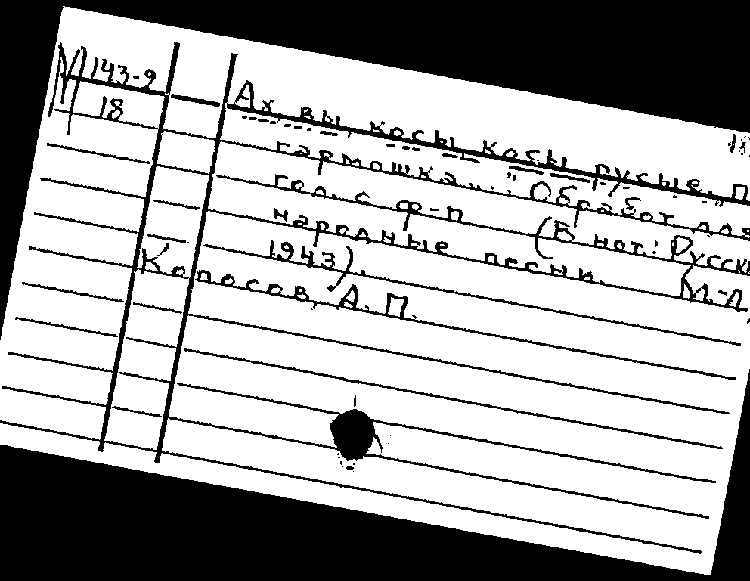 М 143-9
18
Ах вы, косы, косы русые, П
гармошка..." Обработ для
гол. с ф-п (В нот.: Русски
народные песни. М-Л,
1943).
Колосов, А. П.